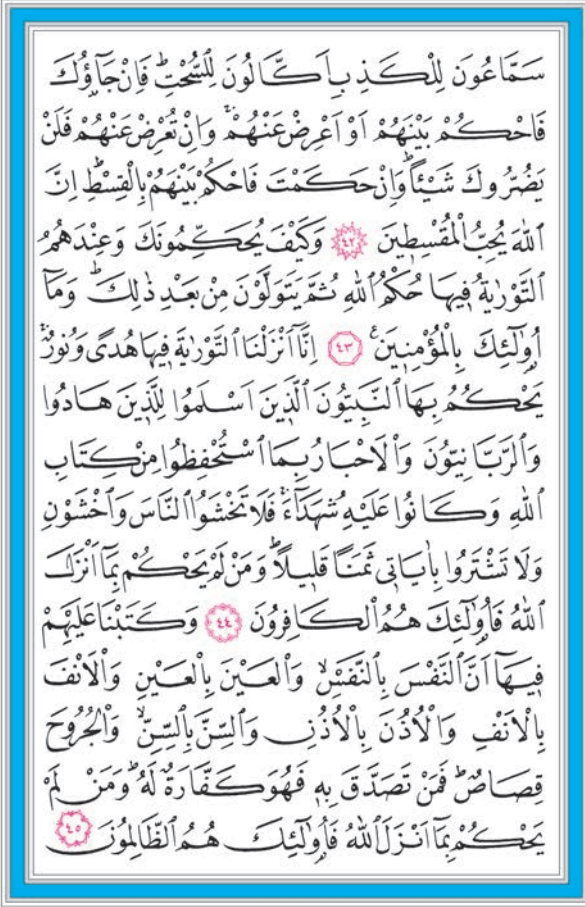 سَمَّاعُونَ لِلْكَذِبِ اَكَّالُونَ لِلسُّحْتِۜ فَاِنْ جَٓاؤُ۫كَ
فَاحْكُمْ بَيْنَهُمْ اَوْ اَعْرِضْ عَنْهُمْۚ وَاِنْ تُعْرِضْ عَنْهُمْ فَلَنْ
يَضُرُّوكَ شَيْـٔاًۜ وَاِنْ حَكَمْتَ فَاحْكُمْ بَيْنَهُمْ بِالْقِسْطِۜ اِنَّ
اللّٰهَ يُحِبُّ الْمُقْسِط۪ينَ ﴿٤٢﴾ وَكَيْفَ يُحَكِّمُونَكَ وَعِنْدَهُمُ
التَّوْرٰيةُ ف۪يهَا حُكْمُ اللّٰهِ ثُمَّ يَتَوَلَّوْنَ مِنْ بَعْدِ ذٰلِكَۜ وَمَٓا
اُو۬لٰٓئِكَ بِالْمُؤْمِن۪ينَ۟ ﴿٤٣﴾ اِنَّٓا اَنْزَلْنَا التَّوْرٰيةَ ف۪يهَا هُدًى وَنُورٌۚ
يَحْكُمُ بِهَا النَّبِيُّونَ الَّذ۪ينَ اَسْلَمُوا لِلَّذ۪ينَ هَادُوا
وَالرَّبَّانِيُّونَ وَالْاَحْبَارُ بِمَا اسْتُحْفِظُوا مِنْ كِتَابِ
اللّٰهِ وَكَانُوا عَلَيْهِ شُهَدَٓاءَۚ فَلَا تَخْشَوُا النَّاسَ وَاخْشَوْنِ
وَلَا تَشْتَرُوا بِاٰيَات۪ي ثَمَناً قَل۪يلاًۜ وَمَنْ لَمْ يَحْكُمْ بِمَٓا اَنْزَلَ
اللّٰهُ فَاُو۬لٰٓئِكَ هُمُ الْكَافِرُونَ ﴿٤٤﴾ وَكَتَبْنَا عَلَيْهِمْ
ف۪يهَٓا اَنَّ النَّفْسَ بِالنَّفْسِۙ وَالْعَيْنَ بِالْعَيْنِ وَالْاَنْفَ
بِالْاَنْفِ وَالْاُذُنَ بِالْاُذُنِ وَالسِّنَّ بِالسِّنِّۙ وَالْجُرُوحَ
قِصَاصٌۜ فَمَنْ تَصَدَّقَ بِه۪ فَهُوَ كَفَّارَةٌ لَهُۜ وَمَنْ لَمْ
يَحْكُمْ بِمَٓا اَنْزَلَ اللّٰهُ فَاُو۬لٰٓئِكَ هُمُ الظَّالِمُونَ ﴿٤٥﴾